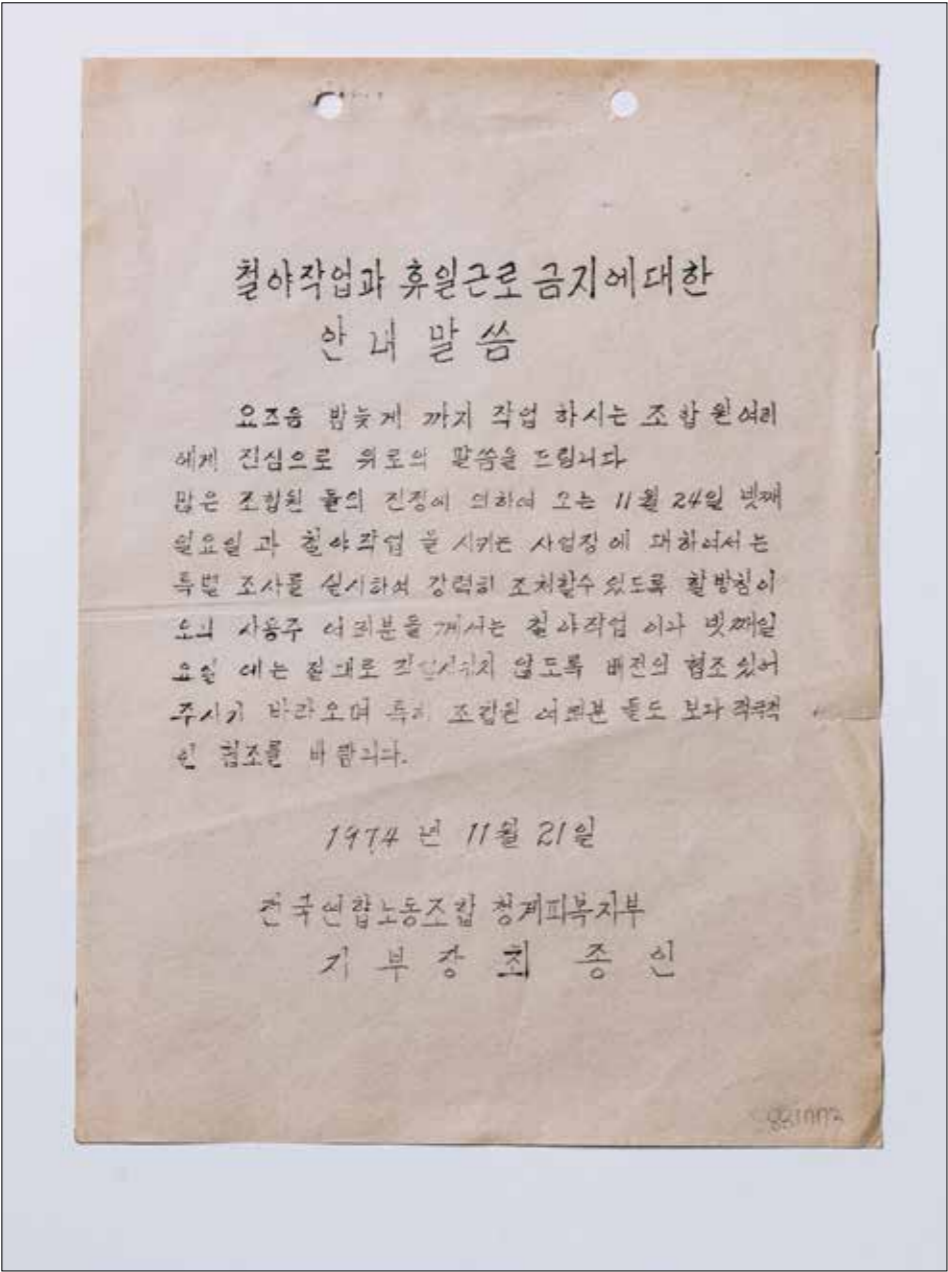 철야작업과 휴일근로 금지에대한
안내 말씀
요즈음 밤늦게 까지 작업 하시는 조합원여러
에게 진심으로 위로의 말씀을 드립니다
많은 조합원 들의 진정에 의하여 오는 11월 24일 넷째
일요일 과 철야작업 을 시키는 사업장 에 대하여서는
특별 조사를 실시하여 강력히 조치할수 있도록 할방침이
오니 사용주 여러분들 께서는 철야작업 이나 넷째일
요일 에는 절대로 않도록 배전의 협조 있어
주시기 바라오며 특히 조합원 여러분 들도 보다 적극적
인 협조를 바랍니다.
1974 년 11월 21일
전국연합노동조합 청계피복지부
지 부 장 최 종 인